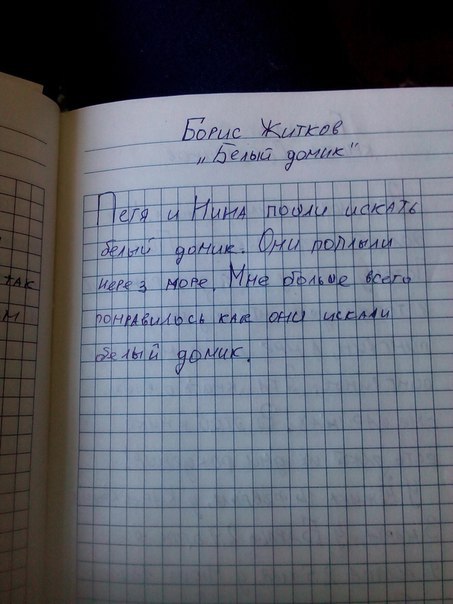 Борис Житков
„Белый домик"
Петя и Нина пошли искать
белый домик. Они поплыли
через море. Мне больше всего
понравилось как они искали
белый домик.
так
м